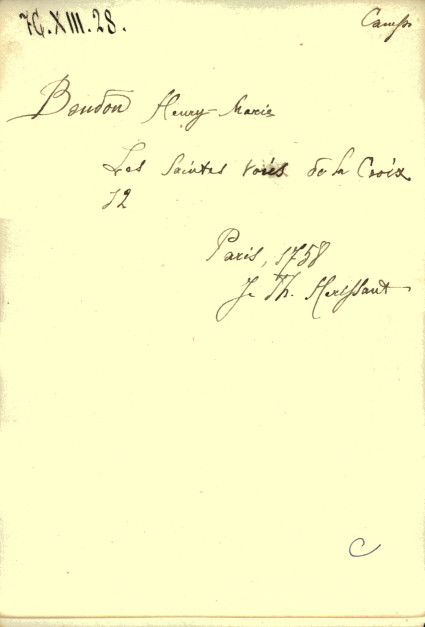 7G.XIII.28.
Boudon Henry-Marie
Les Saintes voies de la Croix
12
Paris, 1758
J. Th. Herissant
C